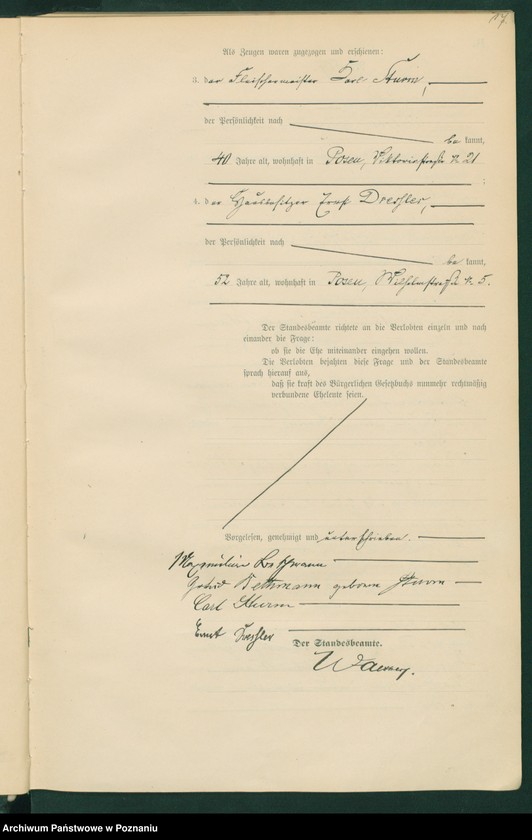 17
Als Zeugen waren zugezogen und erschienen:
3. der Fleischermeister Karl Sturm,
der Persönlichkeit nach
be kannt,
40 Jahre alt, wohnhaft in Posen, Viktoriastraße N. 21
;
4. der Hausbesitzer Ernst Dreßler,
der Persönlichkeit nach
be kannt,
52 Jahre alt, wohnhaft in Posen, Wilhelmstraße N. 5.
Der Standesbeamte richtete an die Verlobten einzeln und nach
einander die Frage:
ob sie die Ehe miteinander eingehen wollen.
Die Verlobten bejahten diese Frage und der Standesbeamte
sprach hierauf aus,
daß sie kraft des Bürgerlichen Gesetzbuchs nunmehr rechtmäßig
verbundene Eheleute seien.
Vorgelesen, genehmigt und unterschrieben.
Maximilian
geborene Sturm
Carl Sturm
Ernst Dreßler
Der Standesbeamte.
Archiwum Państwowe w Poznaniu